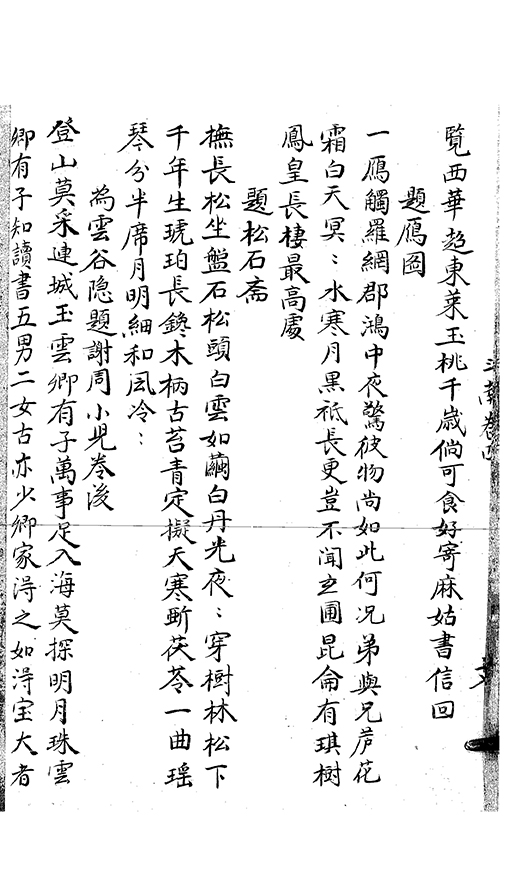 覧西華趂東萊玉桃千歲倘可食好寄麻姑書信回
題鴈圖
一鴈觸羅網郡鴻中夜驚彼物尚如此何况弟與兄芦花
霜白天冥:水寒月黑祗長更豈不聞玄圃昆侖有琪樹
鳳皇長棲最高處
題松石斋
撫長松坐盤石松頭白雲如繭白丹光夜:穿樹林松下
千年生琥珀長鑱木柄古苔青定擬天寒斵茯苓一曲瑶
琴分半席月明細和风冷:
為雲谷隐題謝周小児卷後
登山莫采連城玉雲卿有子萬事足入海莫探明月珠雲
卿有子知讀書五男二女古亦少卿家淂之如淂宝大者